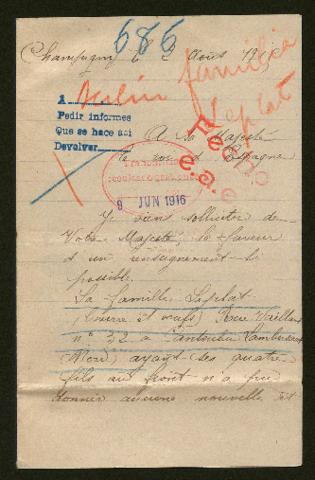 686
Champigny le 2 Août 19
Berlin familia
Leplat
1
Pedir informes
Que se hace aci
Devolver
A Sa Majesté
le roi d'Espagne
Recibo
e.a.e
9 JUN 1916
Je viens solliciter de
Votre Majesté la faveur
d'un renseignement si
possible
La famille Leplat
(beurre et œufs) Rue Vaillant
n° 32 à Canteleu Lambersart
(Nord) ayant ses quatre
fils au front n'a pu
donner aucune nouvelle et